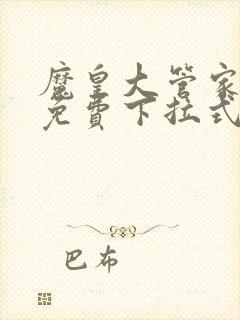 魔皇大管家
免費下拉式
巴布